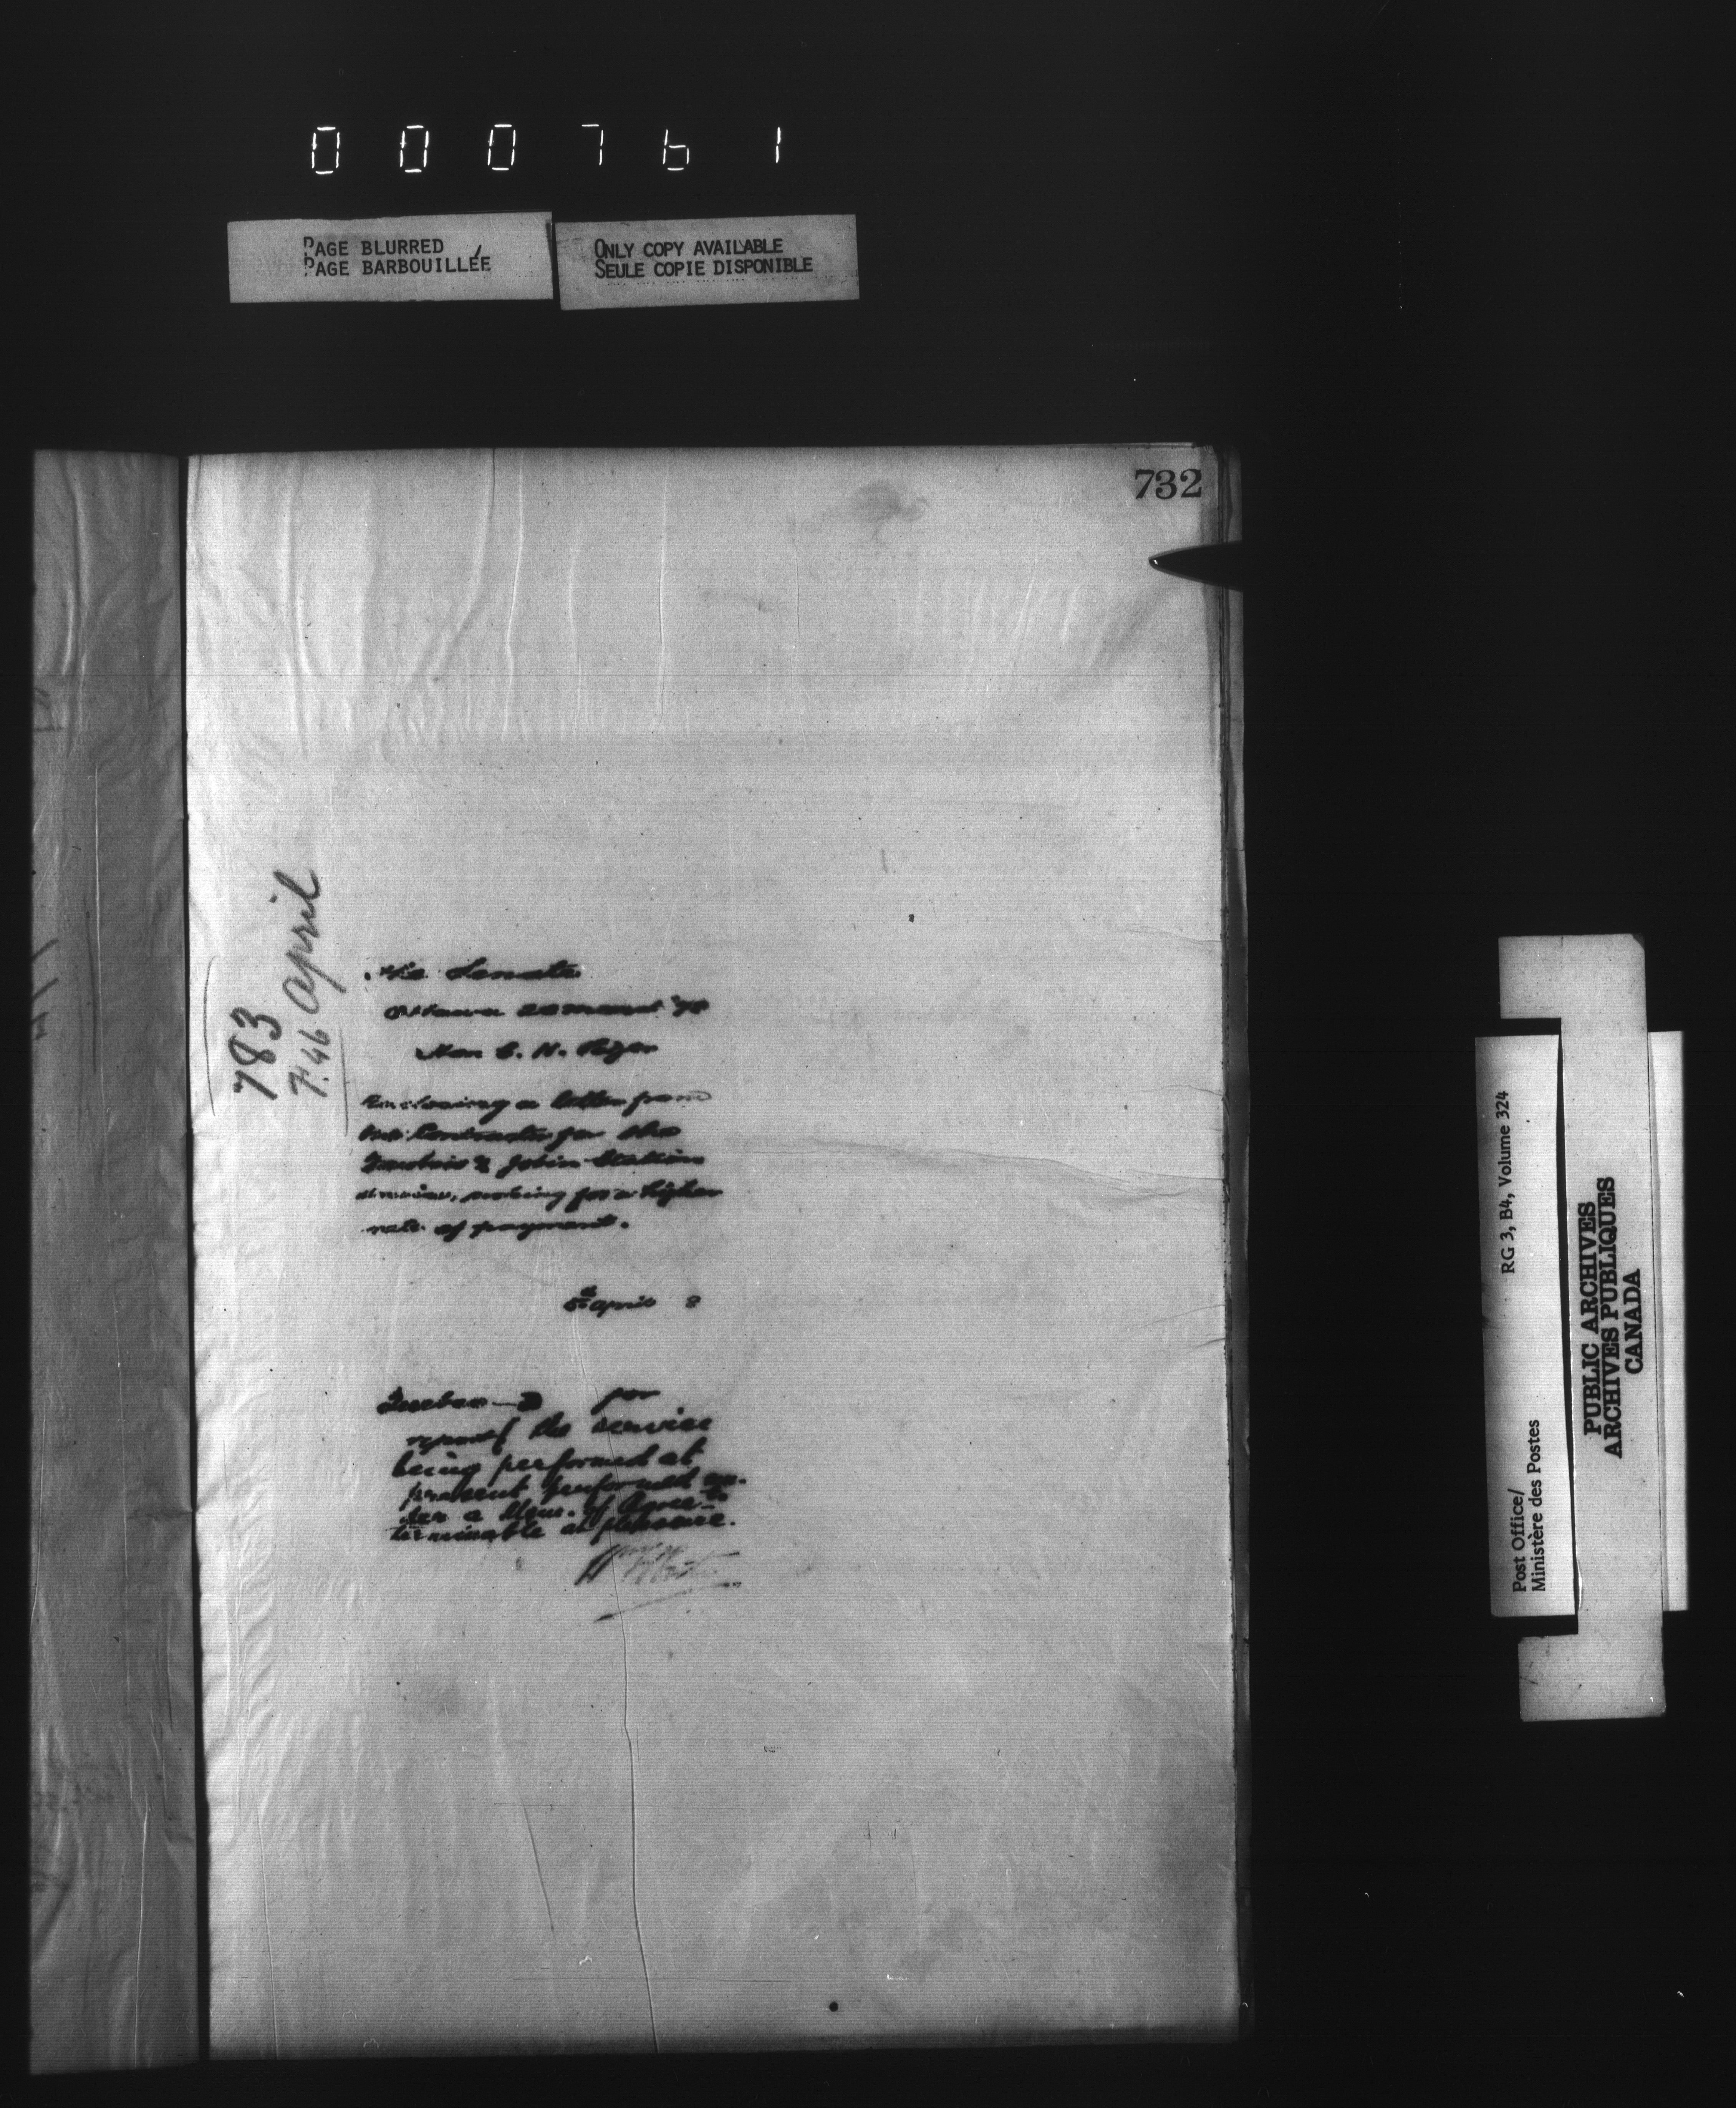 000761
PAGE BLURRED
PAGE BARBOUILLÉE
ONLY COPY AVAILABLE
SEULE COPIE DISPONIBLE
732
783
F.46 April
The Senate
Ottawa
Hon C. H.
Enclosing a letter from
the Contractor for the
& Station
service, asking for a higher
rate of payment.
5th April 8
Quebec — for
report the service
being performed at
present performed un-
der a Mem. of Agree-
terminable at pleasure.
RG 3, B4, Volume 324
Post Office/
Ministère des Postes
PUBLIC ARCHIVES
ARCHIVES PUBLIQUES
CANADA